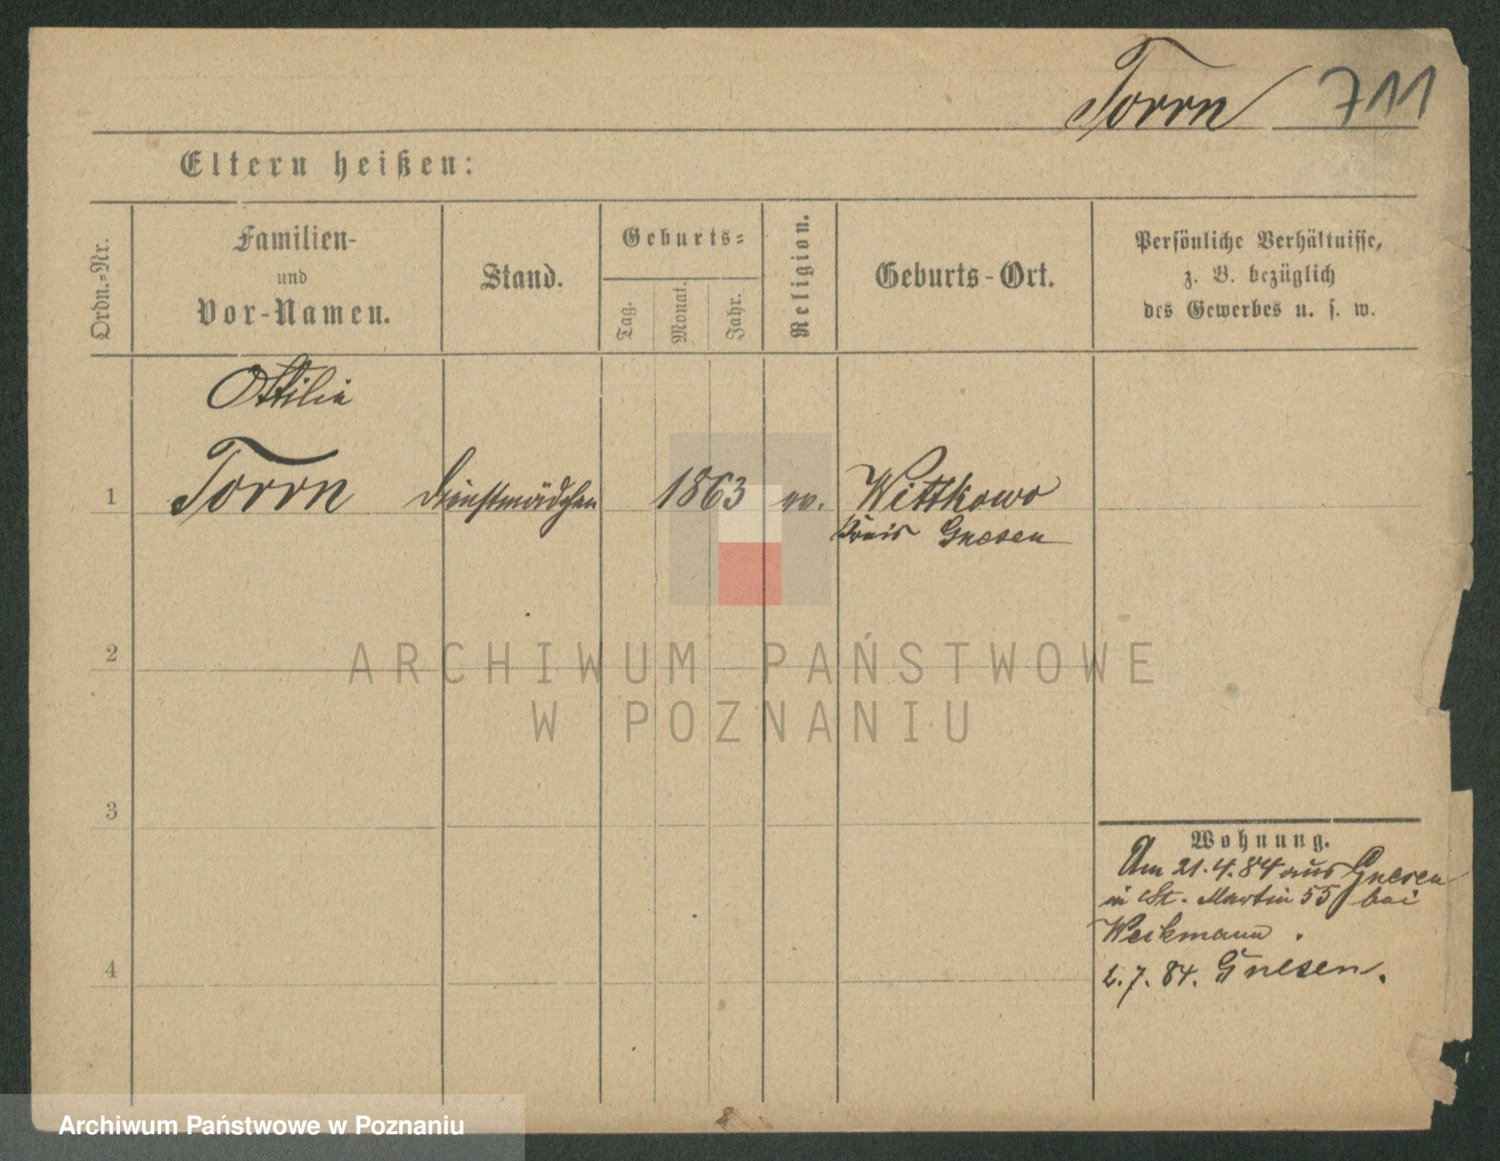 Torrn 711
Eltern heißen:
Ordn.-Nr.
Familien-
und
Vor-Namen.
Stand.
Geburts-
Tag.
Monat.
Jahr.
Religion.
Geburts-Ort.
Persönliche Verhältnisse,
z. B. bezüglich
des Gewerbes u. s. w.
Ottilie
1 Torrn Dienstmädchen 1863 ev. Wittkowo
Kreis Gnesen
2
3
4
Wohnung.
Am 21.4.84 aus Gnesen
in St. Martin 55 bei
Weikmann.
2.7.84. Gnesen.
ARCHIWUM PAŃSTWOWE
W POZNANIU
Archiwum Państwowe w Poznaniu